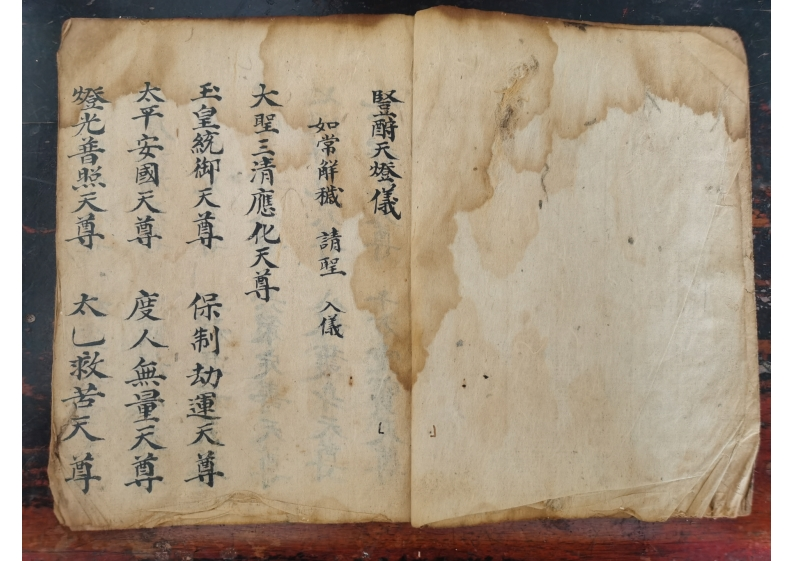 豎酧天燈儀
如常解穢 請聖 入儀
大聖三清應化天尊
玉皇統御天尊 保制劫運天尊
太平安國天尊 度人無量天尊
燈光普照天尊 太乚救苦天尊